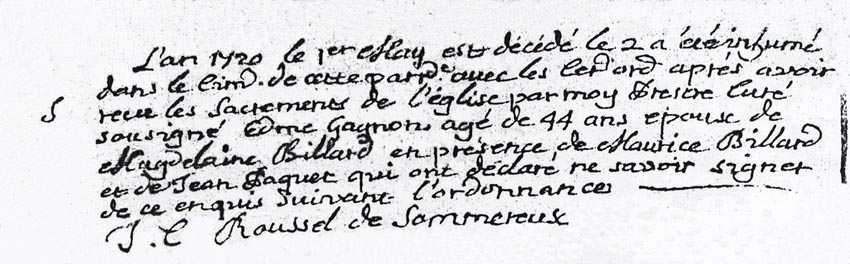 L'an 1720 le 1er May est décédé le 2 a été inhumé
dans le cim. de cette parr.e avec les cer ord après avoir
S reçu les Sacrements de l'église par moy Prestre Curé
sousigné Edme Gagnon agé de 44 ans epouse de
Magdelaine Billard en présence de Maurice Billard
et de Jean Paquet qui ont déclaré ne savoir signer
de ce enquis suivant l'ordonnance
J. C Roussel de Sommereux